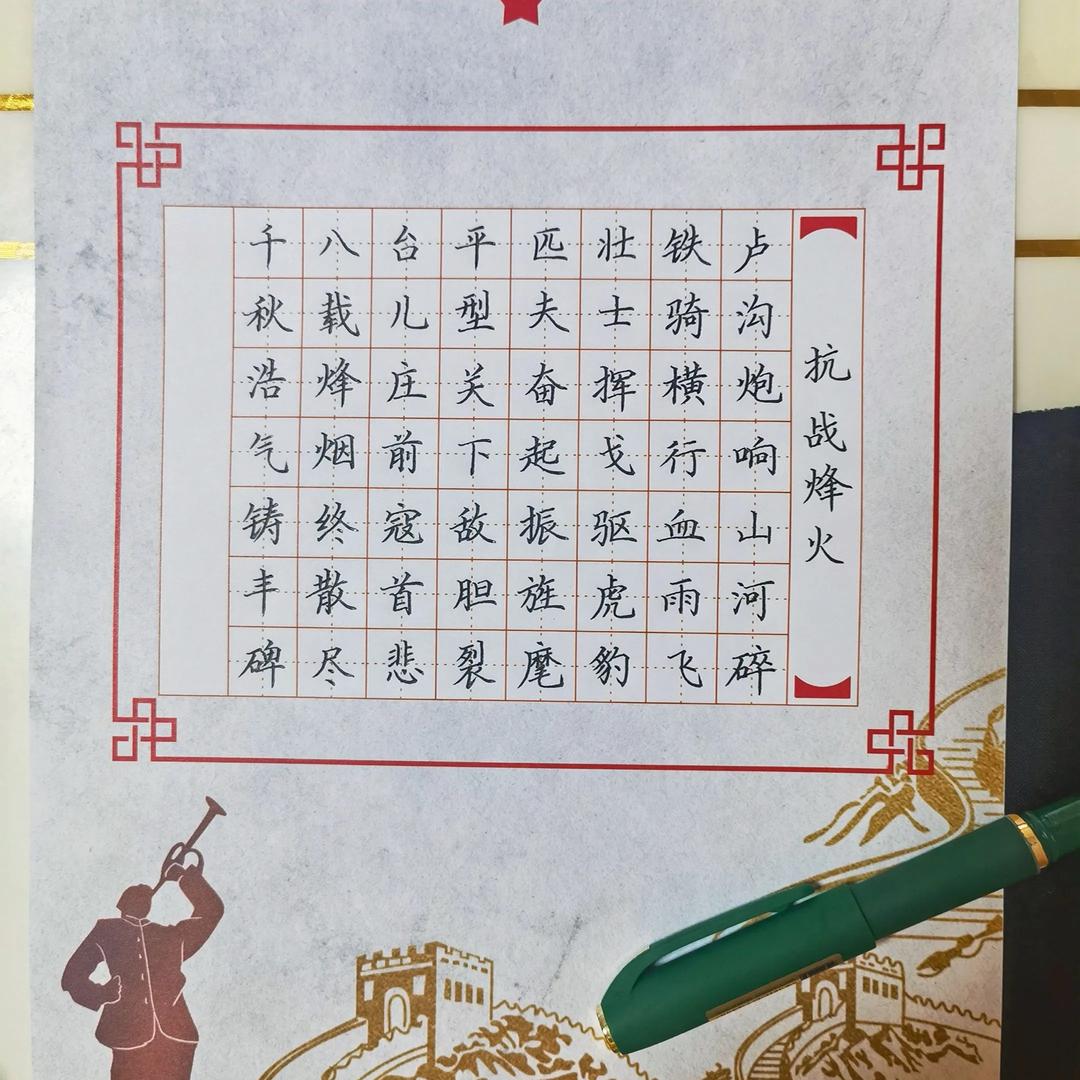 抗战烽火
卢沟炮响山河碎
铁骑横行血雨飞
壮士挥戈驱虎豹
匹夫奋起振旌麾
平型关下敌胆裂
台儿庄前寇首悲
八载烽烟终散尽
千秋浩气铸丰碑